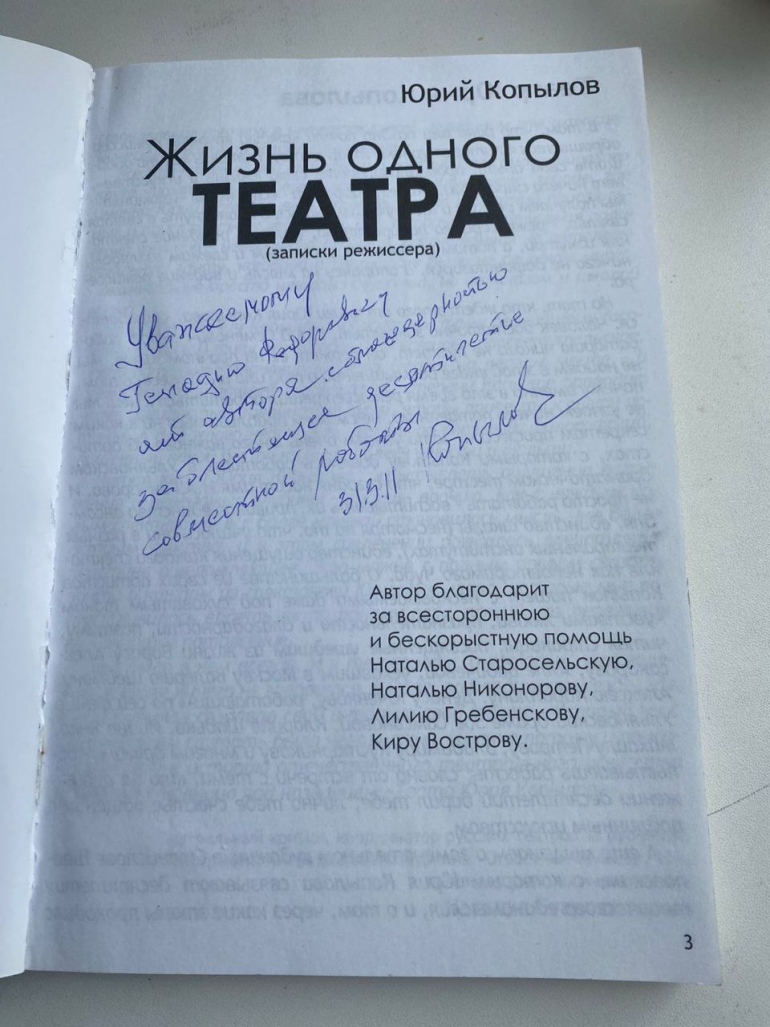 Юрий Копылов
Жизнь одного
ТЕАТРА
(записки режиссера)
Уважаемому
Геннадию Федоровичу
от автора с благодарностью
за блестящее десятилетие
совместной работы
31.3.11 Копылов
Автор благодарит
за всестороннюю
и бескорыстную помощь
Наталью Старосельскую,
Наталью Никонорову,
Лилию Гребенскову,
Киру Вострову.
3